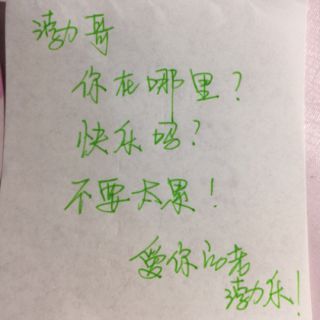 渤哥
你在哪里？
快乐吗？
不要太累！
爱你的老
渤乐！